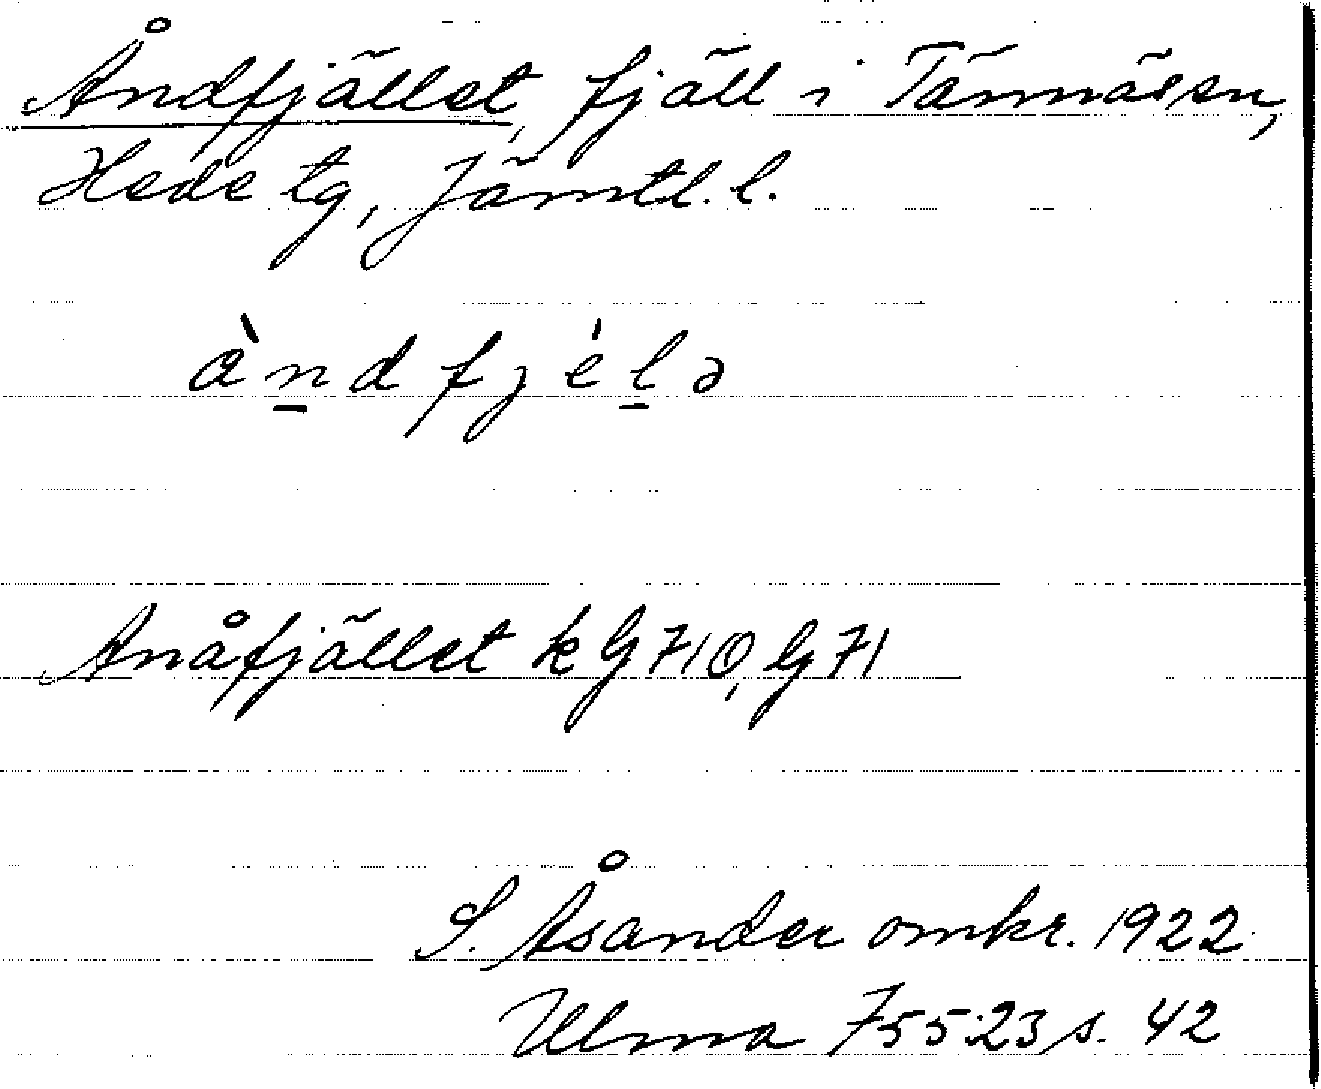 Åndfjället, fjäll i Tännäs sn,
Hede tg, Jämtl. l.
àn̲dfjél̲ə
Anåfjället k G 710, G 71
S. Åsander omkr. 1922
Ulma 755:23 s. 42